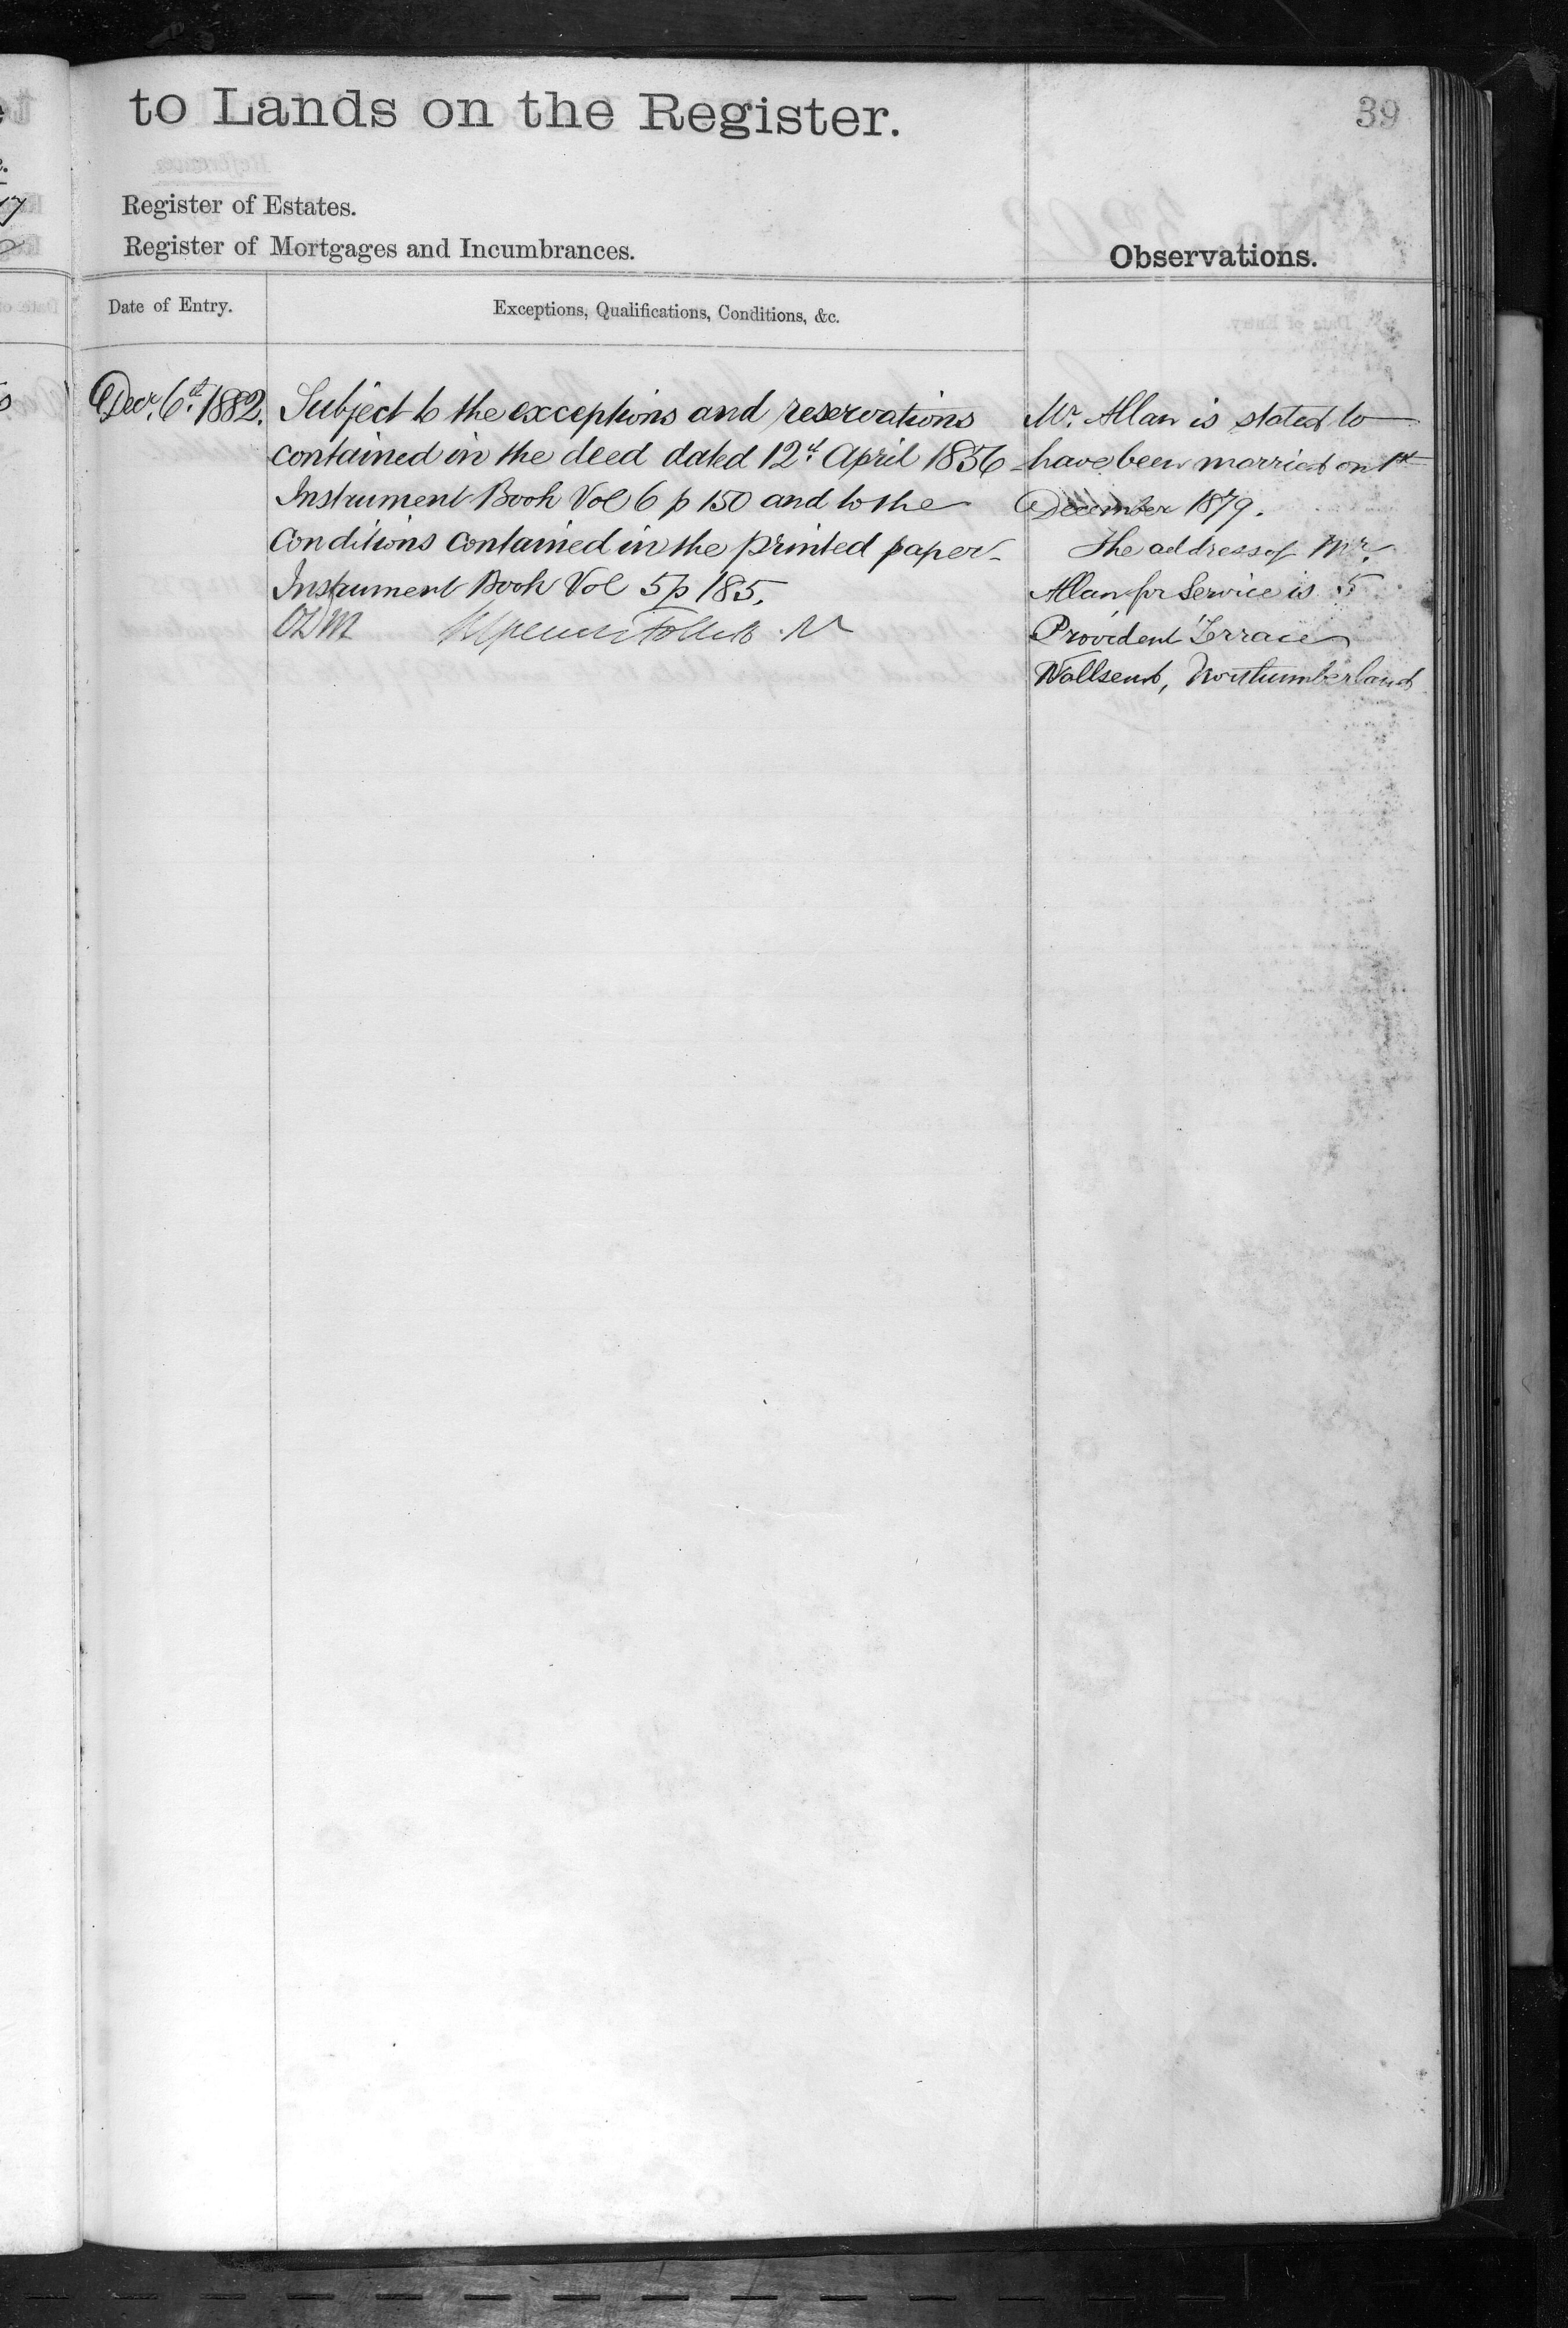 to Lands on the Register.
39
Register of Estates.
Register of Mortgages and Incumbrances.
Observations.
Date of Entry.
Exceptions, Qualifications, Conditions, &c.
Decr. 6th 1882.
Subject to the exceptions and reservations
contained in the deed dated 12th April 1856
Instrument Book Vol 6 p 150 and to the
conditions contained in the printed paper
Instrument Book Vol 5 p 185.
Follett
Mr. Allan is stated to
have been married on 1st
December 1879.
The address of Mr.
Allan for Service is 5
Provident Terrace
Wallsend, Northumberland